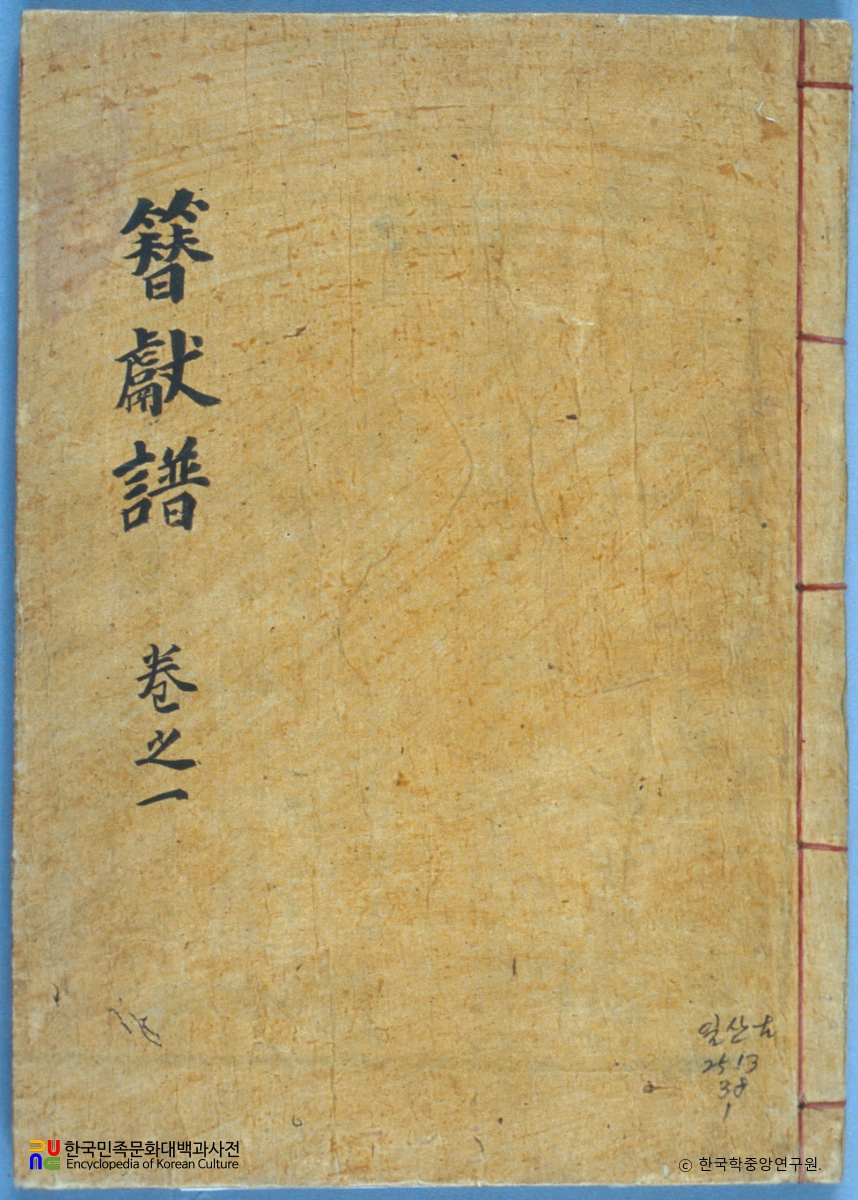 簪獻譜 卷之一
일산古
2513
38
1
한국민족문화대백과사전
Encyclopedia of Korean Culture
© 한국학중앙연구원.